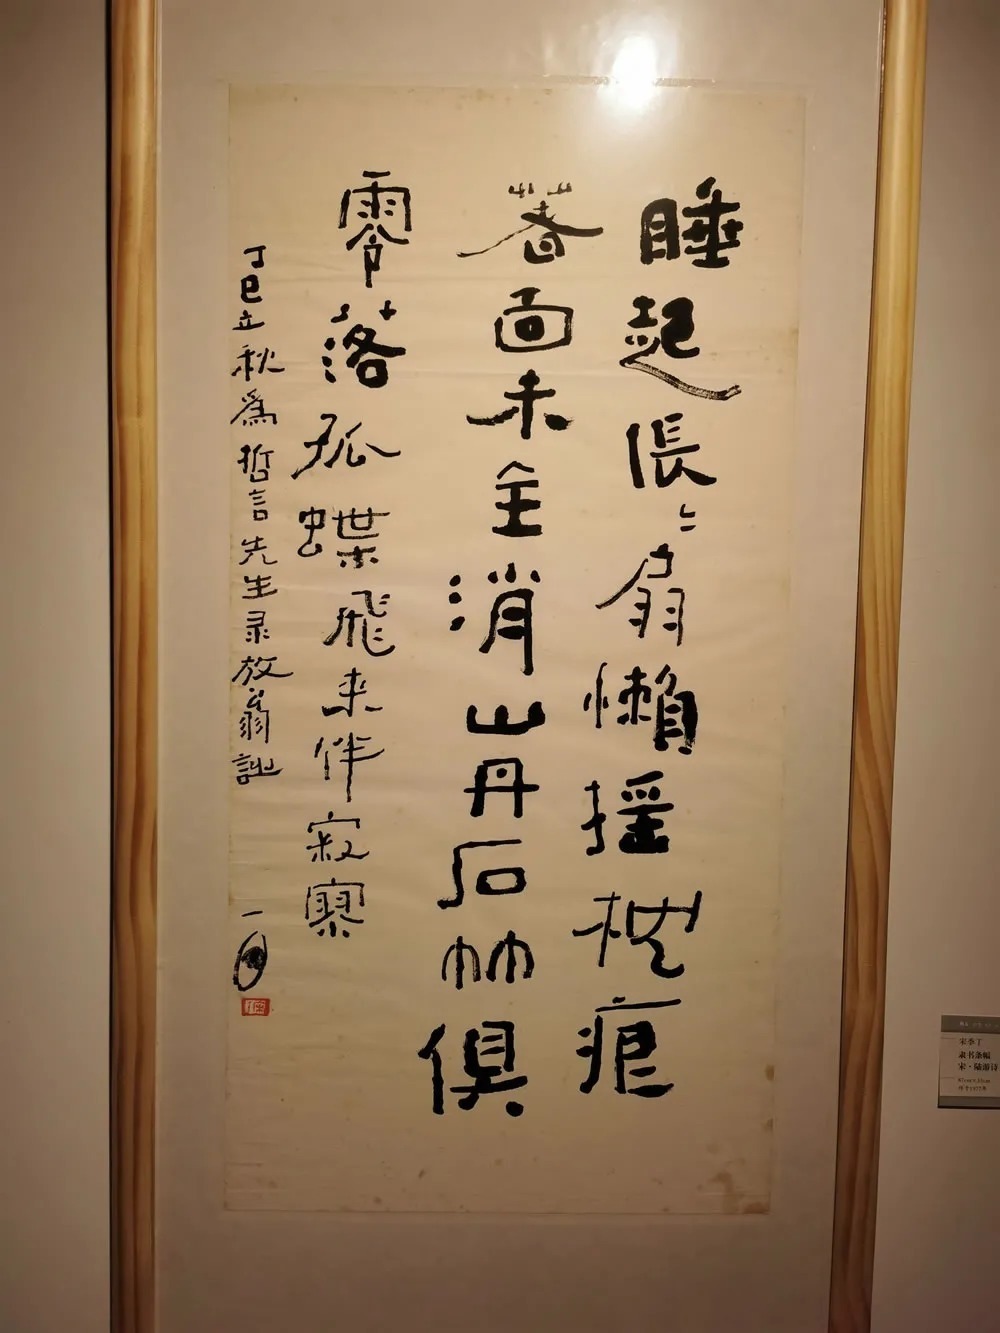 睡起伥〻扇懒摇枕痕
著面未全消山丹石竹俱
零落孤蝶飛来伴寂寞
丁巳立秋為哲言先生录放翁詩
宋季丁
隶书条幅
宋·陆游诗